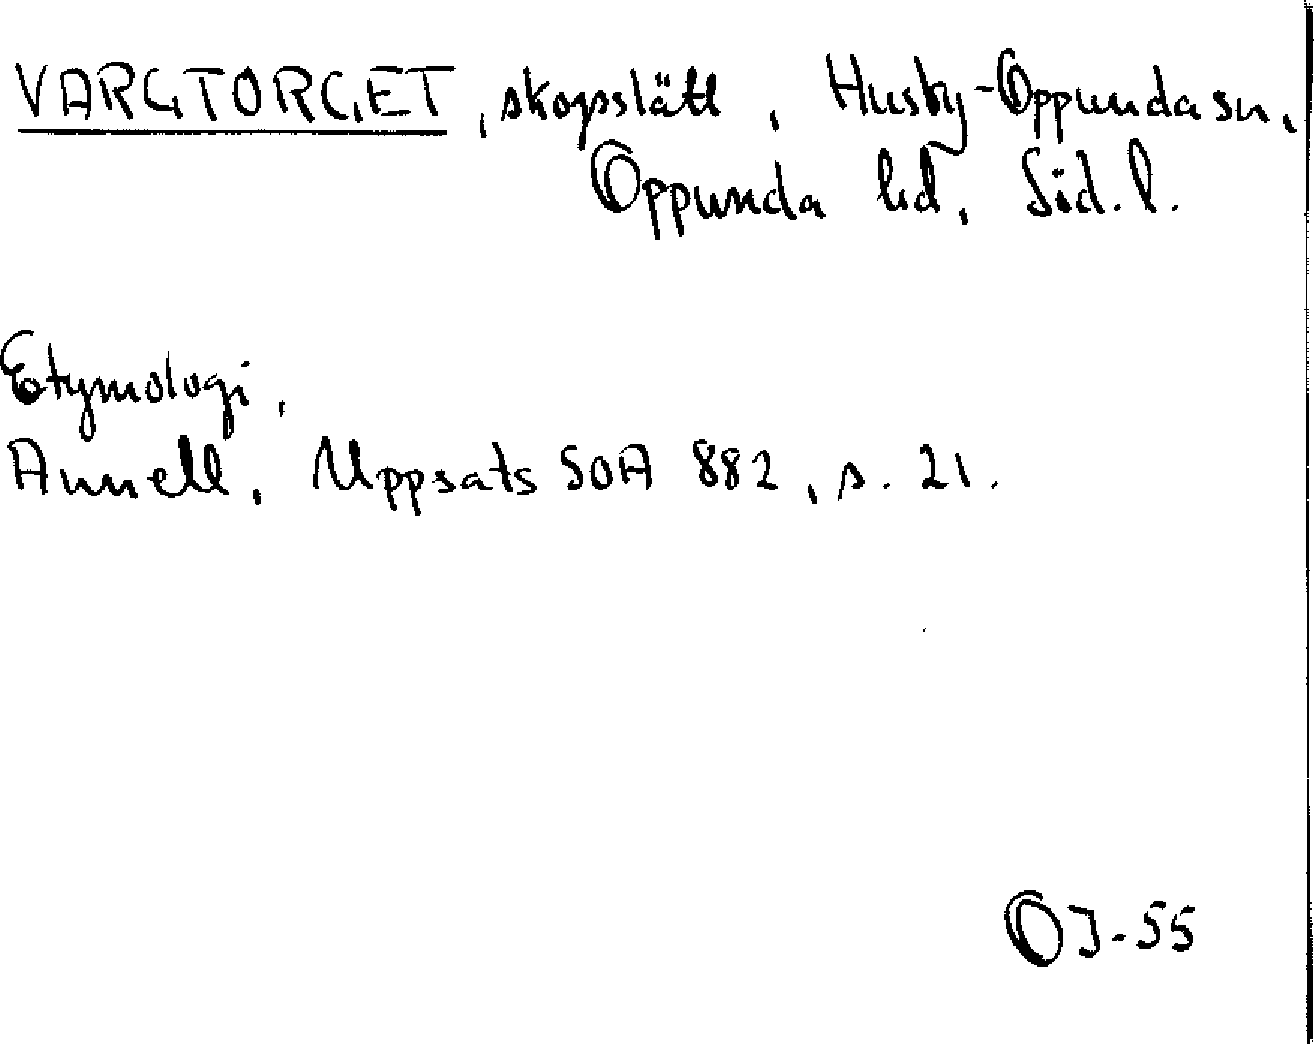 VARGTORGET, skogsslätt, Husby-Oppunda sn,
Oppunda hd, Söd. l.
Etymologi,
Annell, Uppsats SOA 882, s. 21.
OJ-55